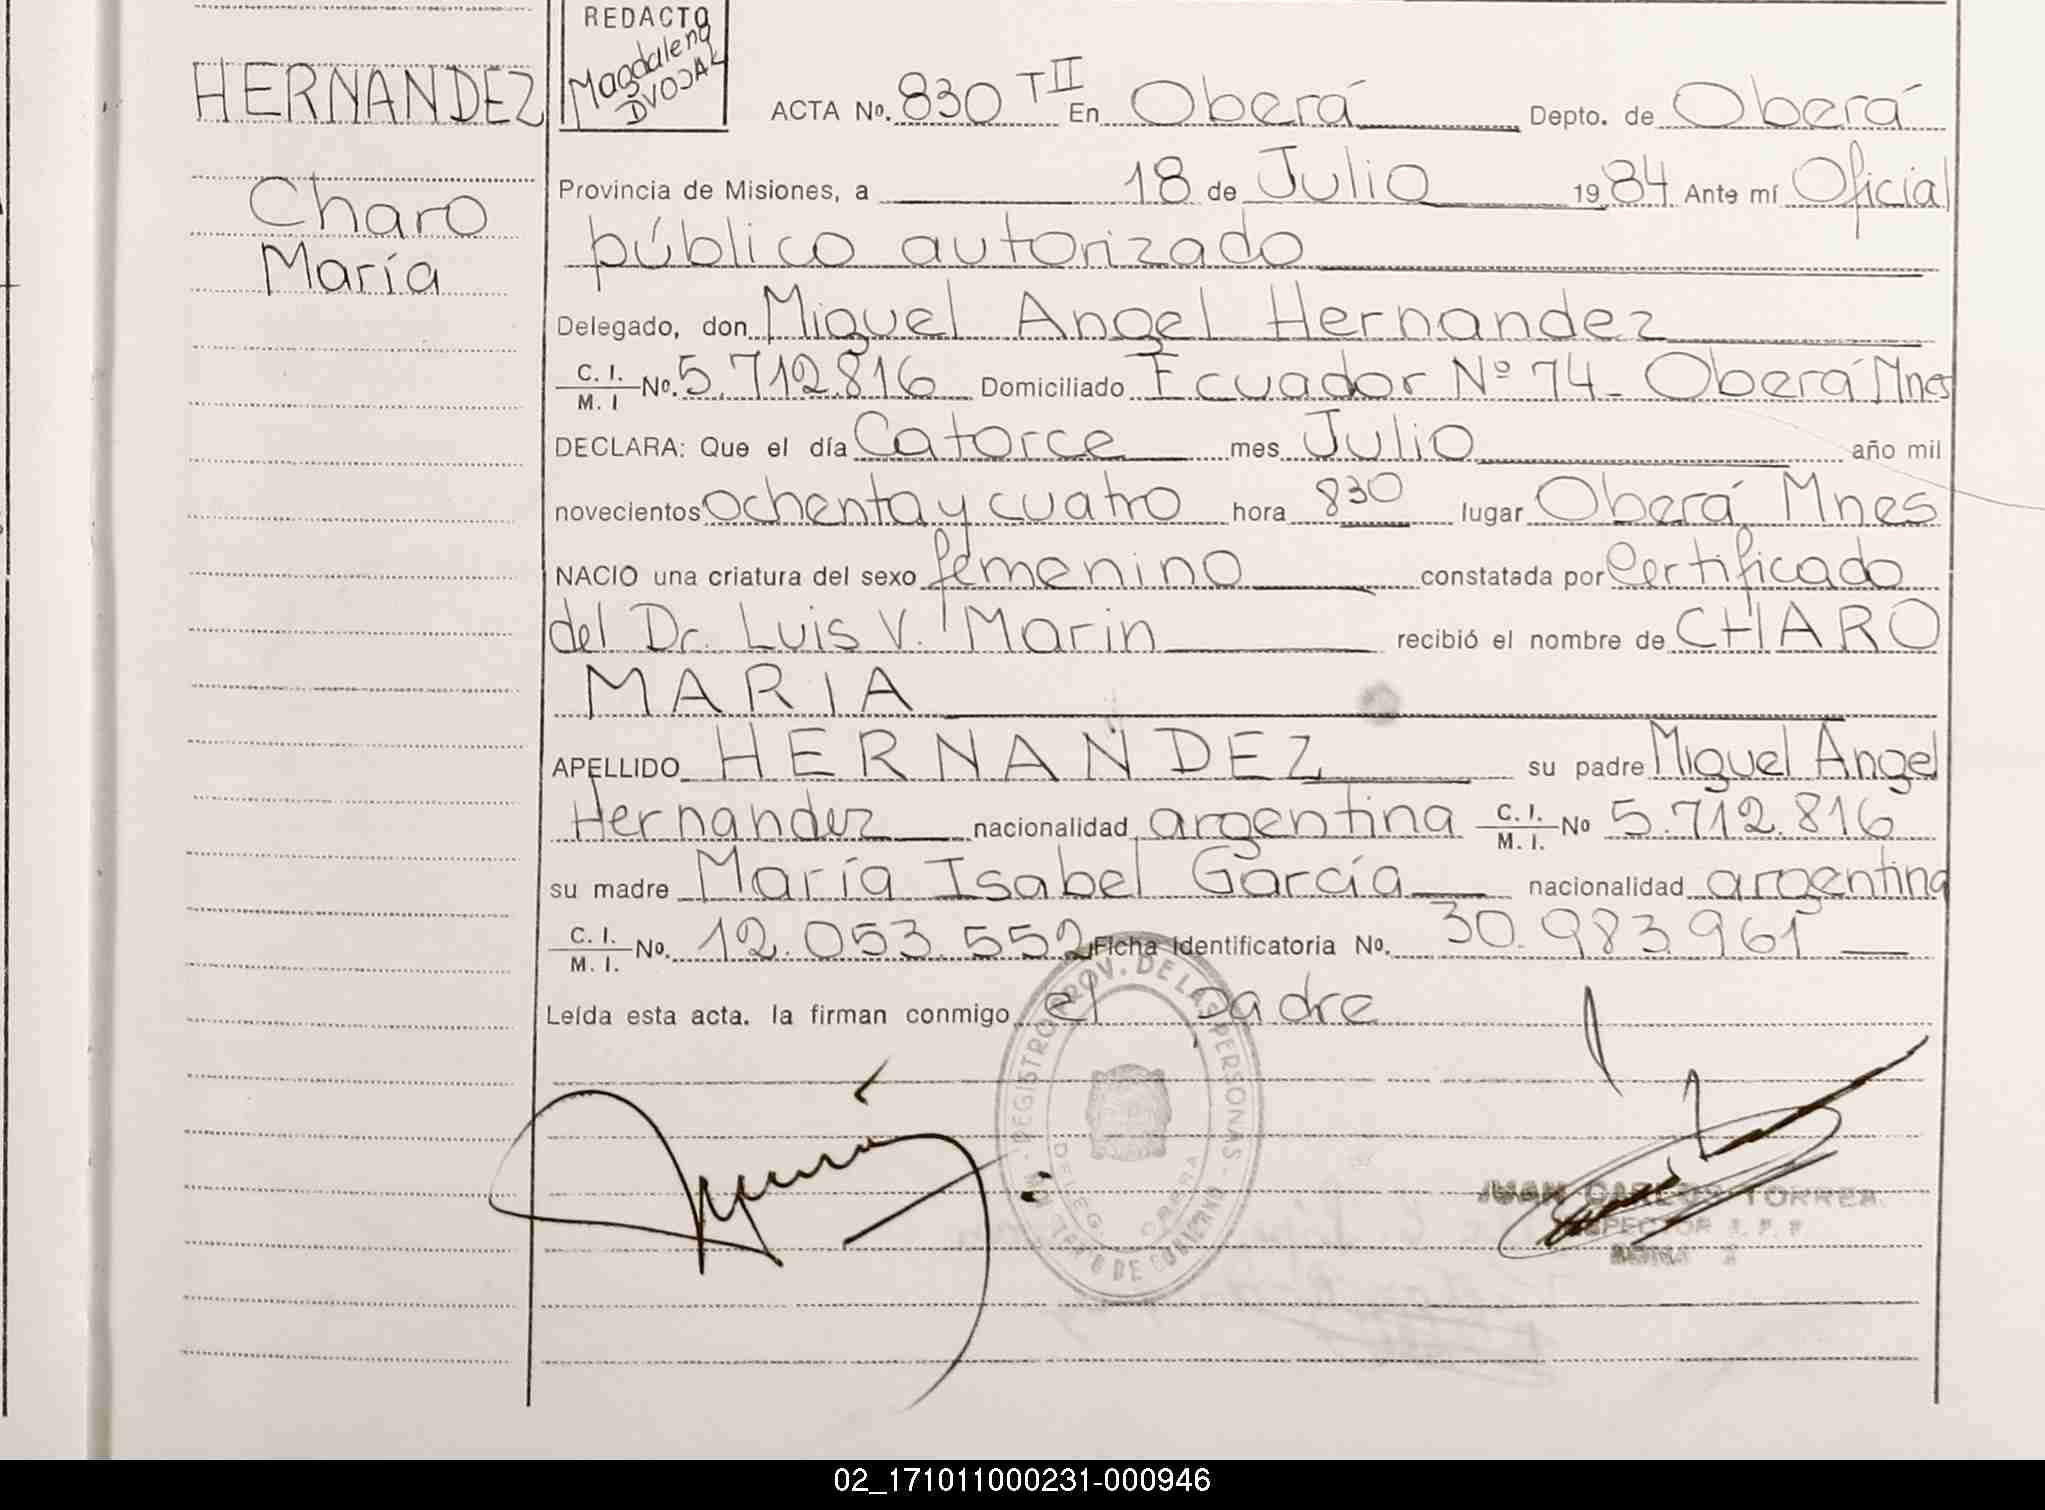 HERNANDEZ
Charo
María
REDACTO
Magdalena
DVOJAK
ACTA No. 830 T II En Oberá Depto. de Oberá
Provincia de Misiones, a 18 de Julio 1984 Ante mí Oficial
público autorizado
Delegado, don Miguel Angel Hernandez
C. I. / M. I No. 5.712.816 Domiciliado Ecuador Nº 74 - Oberá Mnes
DECLARA: Que el día Catorce mes Julio año mil
novecientos ochenta y cuatro hora 830 lugar Oberá Mnes
NACIO una criatura del sexo femenino constatada por Certificado
del Dr. Luis V. Marin recibió el nombre de CHARO
MARIA
APELLIDO HERNANDEZ su padre Miguel Angel
Hernandez nacionalidad argentina C. I. / M. I. No 5.712.816
su madre María Isabel García nacionalidad argentina
C. I. / M. I. No. 12.053.552 Ficha Identificatoria No. 30.983.961
Leída esta acta. la firman conmigo el padre
REGISTRO PROV. DE LAS PERSONAS
DELEG. OBERA
DE GOBIERNO
JUAN CARLOS TORRES
INSPECTOR
02_171011000231-000946